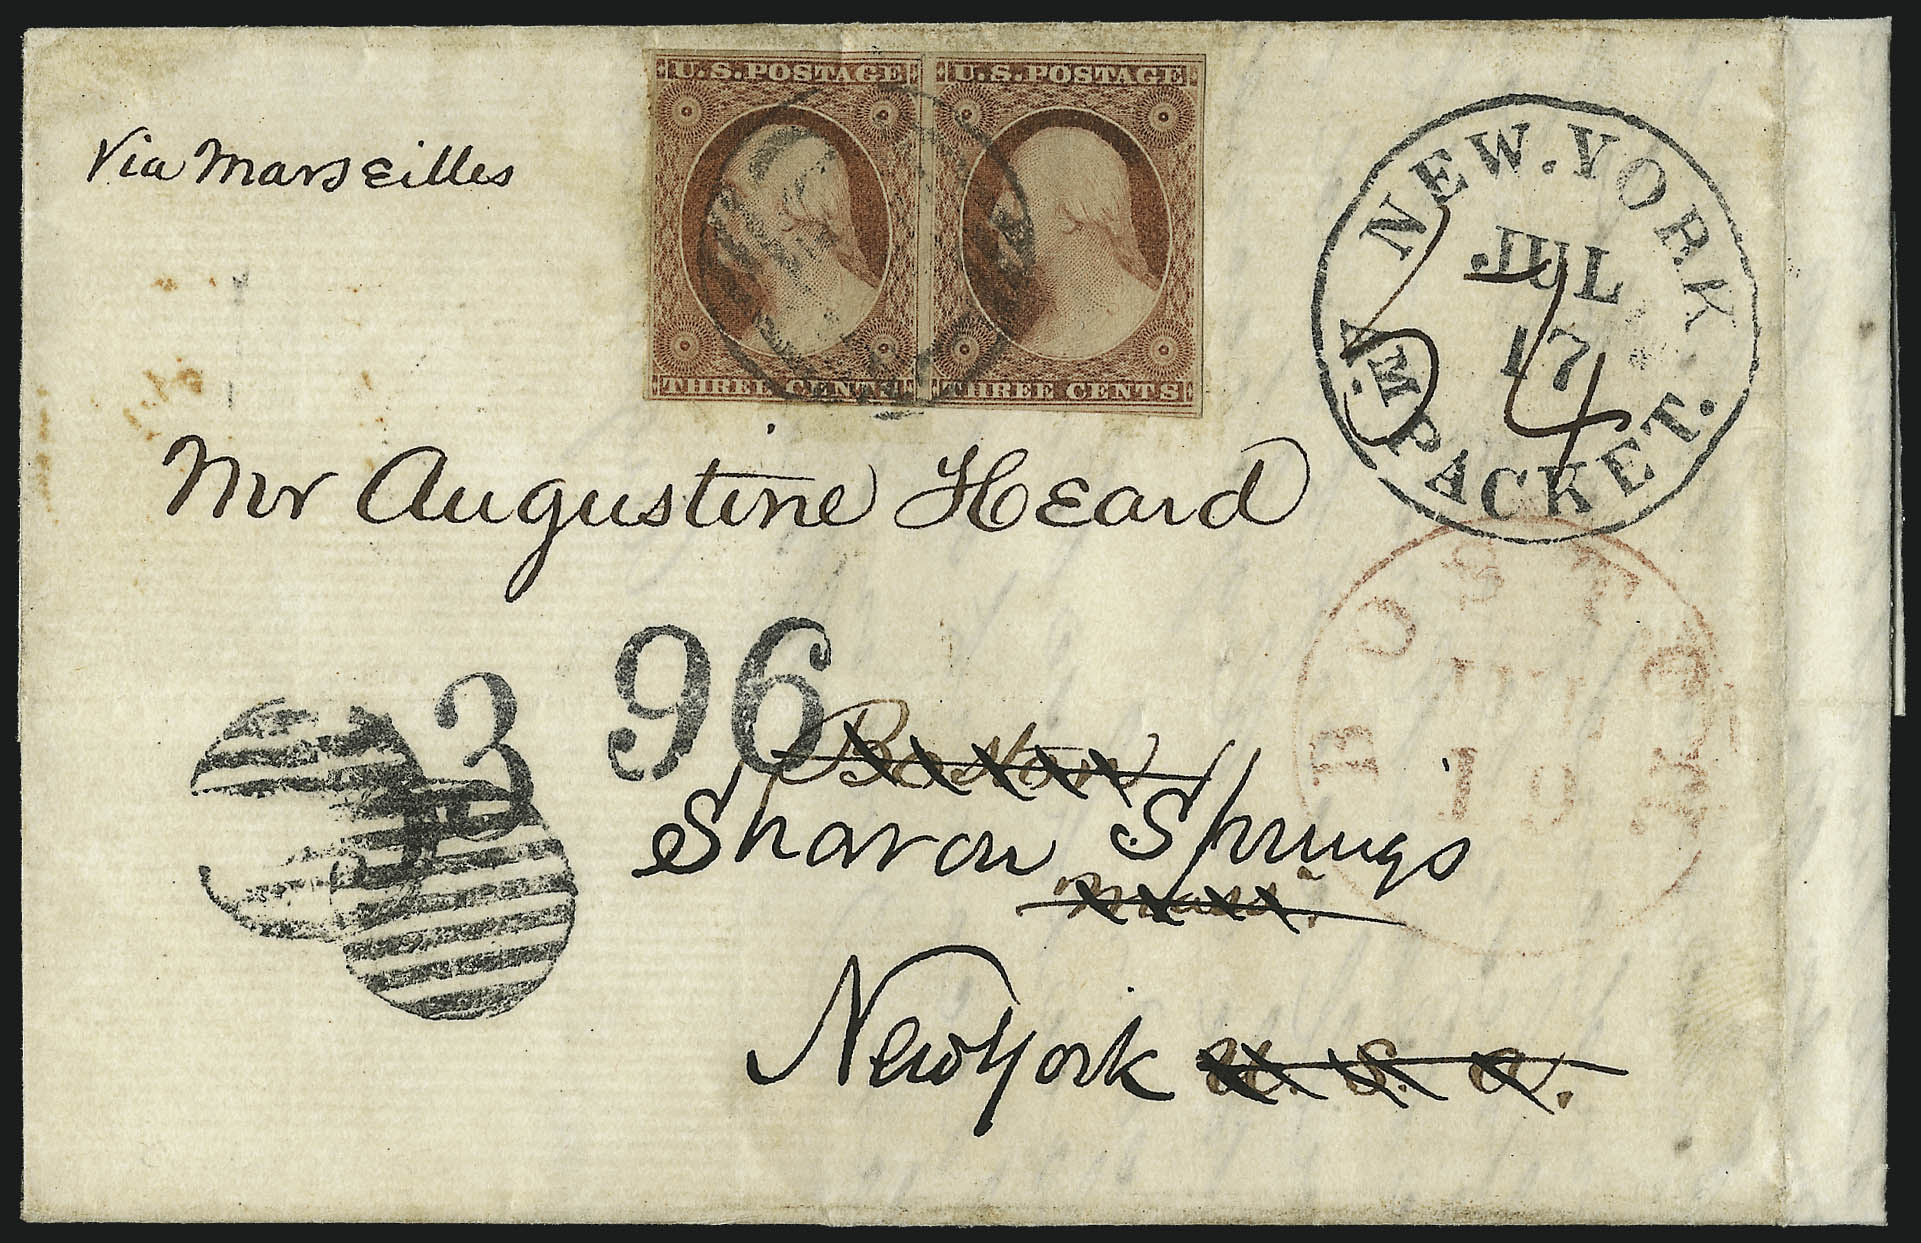 Via Marseilles
U.S. POSTAGE
THREE CENTS
U.S. POSTAGE
THREE CENTS
NEW.YORK
JUL
17
AM PACKET.
Mr Augustine Heard
BOSTON
JUL
19
3
96
Boston
Sharon Springs
Mass.
New York U. S. A.